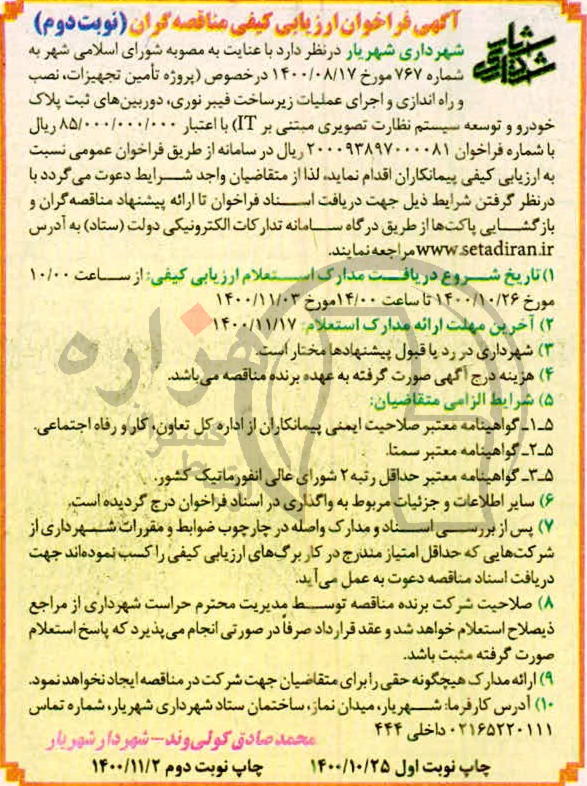 آگهی فراخوان ارزیابی کیفی مناقصه گران (نوبت دوم)
شهرداری شهریار درنظر دارد با عنایت به مصوبه شورای اسلامی شهر به
شماره ۷۶۷ مورخ ۱۴۰۰/۰۸/۱۷ درخصوص (پروژه تأمین تجهیزات، نصب
و راه اندازی و اجرای عملیات زیرساخت فیبر نوری، دوربین‌های ثبت پلاک
خودرو و توسعه سیستم نظارت تصویری مبتنی بر IT) با اعتبار ۸۵/۰۰۰/۰۰۰/۰۰۰ ریال
با شماره فراخوان ۲۰۰۰۹۳۸۹۷۰۰۰۰۸۱ ریال در سامانه از طریق فراخوان عمومی نسبت
به ارزیابی کیفی پیمانکاران اقدام نماید، لذا از متقاضیان واجد شرایط دعوت می‌گردد با
درنظر گرفتن شرایط ذیل جهت دریافت اسناد فراخوان تا ارائه پیشنهاد مناقصه‌گران و
بازگشایی پاکت‌ها از طریق درگاه سامانه تدارکات الکترونیکی دولت (ستاد) به آدرس
www.setadiran.ir مراجعه نمایند.
۱) تاریخ شروع دریافت مدارک استعلام ارزیابی کیفی: از ساعت ۱۰/۰۰
مورخ ۱۴۰۰/۱۰/۲۶ تا ساعت ۱۴/۰۰ مورخ ۱۴۰۰/۱۱/۰۳
۲) آخرین مهلت ارائه مدارک استعلام: ۱۴۰۰/۱۱/۱۷
۳) شهرداری در رد یا قبول پیشنهادها مختار است.
۴) هزینه درج آگهی صورت گرفته به عهده برنده مناقصه می‌باشد.
۵) شرایط الزامی متقاضیان:
۵ـ۱ـ گواهینامه معتبر صلاحیت ایمنی پیمانکاران از اداره کل تعاون، کار و رفاه اجتماعی.
۵ـ۲ـ گواهینامه معتبر سمتا.
۵ـ۳ـ گواهینامه معتبر حداقل رتبه ۲ شورای عالی انفورماتیک کشور.
۶) سایر اطلاعات و جزئیات مربوط به واگذاری در اسناد فراخوان درج گردیده است.
۷) پس از بررسی اسناد و مدارک واصله در چارچوب ضوابط و مقررات شهرداری از
شرکت‌هایی که حداقل امتیاز مندرج در کار برگ‌های ارزیابی کیفی را کسب نموده‌اند جهت
دریافت اسناد مناقصه دعوت به عمل می‌آید.
۸) صلاحیت شرکت برنده مناقصه توسط مدیریت محترم حراست شهرداری از مراجع
ذیصلاح استعلام خواهد شد و عقد قرارداد صرفاً در صورتی انجام می‌پذیرد که پاسخ استعلام
صورت گرفته مثبت باشد.
۹) ارائه مدارک هیچگونه حقی را برای متقاضیان جهت شرکت در مناقصه ایجاد نخواهد نمود.
۱۰) آدرس کارفرما: شهریار، میدان نماز، ساختمان ستاد شهرداری شهریار، شماره تماس
۰۲۱۶۵۲۲۰۱۱۱ داخلی ۴۴۴
محمدصادق کولی‌وند – شهردار شهریار
چاپ نوبت اول ۱۴۰۰/۱۰/۲۵ چاپ نوبت دوم ۱۴۰۰/۱۱/۲
هزاره